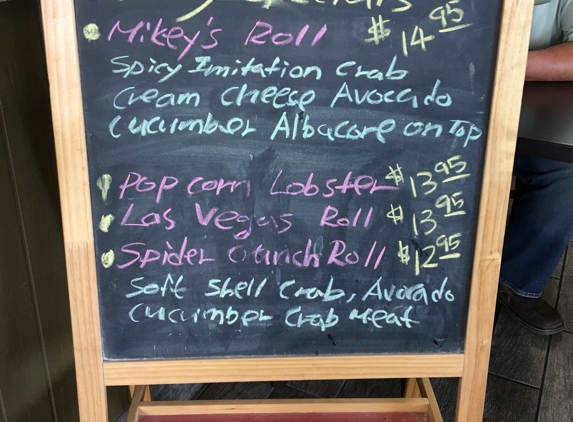 Specials
Mikey's Roll $14.95
Spicy Imitation Crab
Cream Cheese Avocado
Cucumber Albacore on Top
Pop corn Lobster $13.95
Las Vegas Roll $13.95
Spider Crunch Roll $12.95
Soft Shell Crab, Avocado
Cucumber Crab Meat